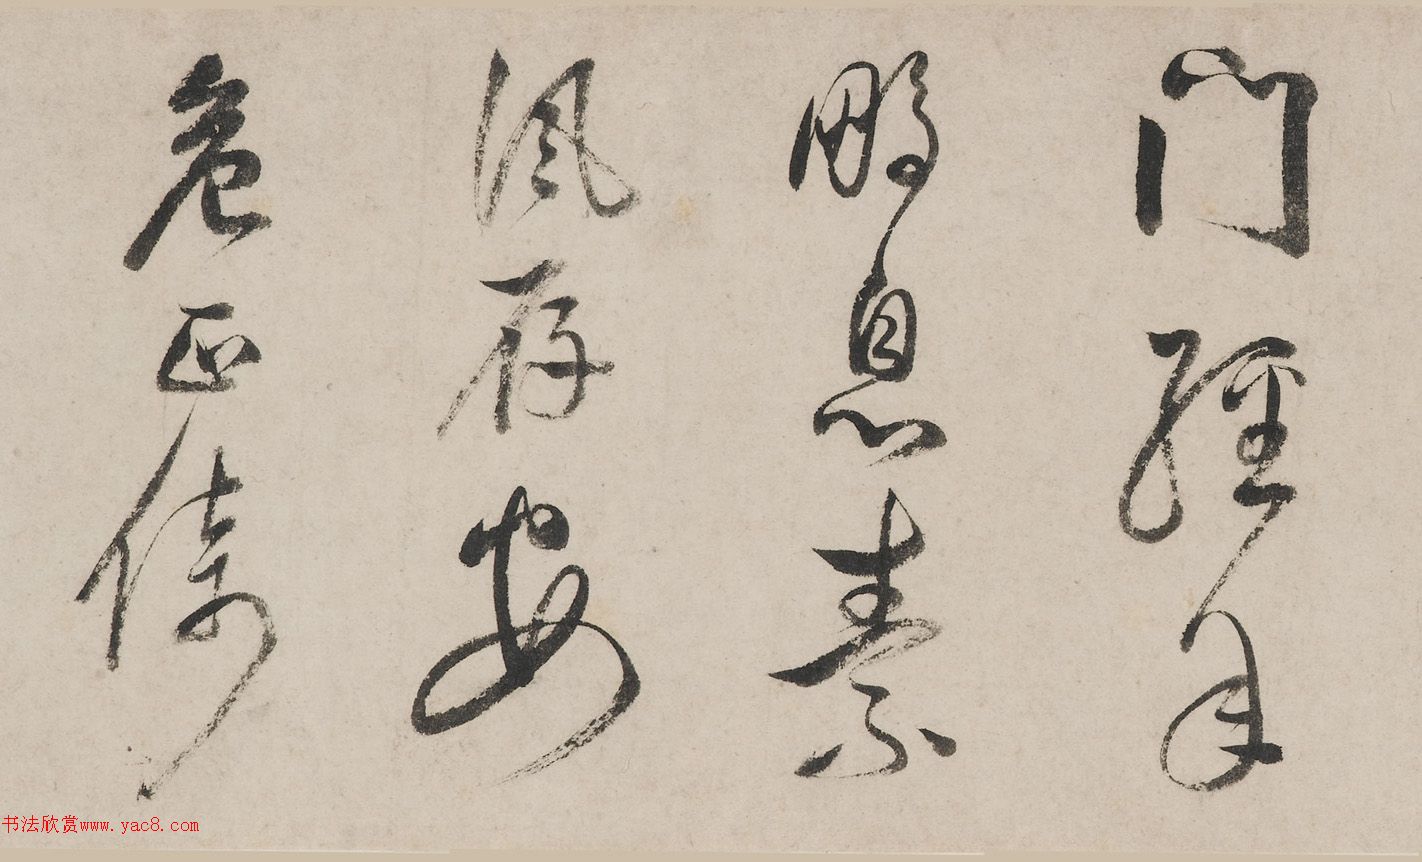 門經月
鵬息素
風存安
危正倚
书法欣赏www.yac8.com